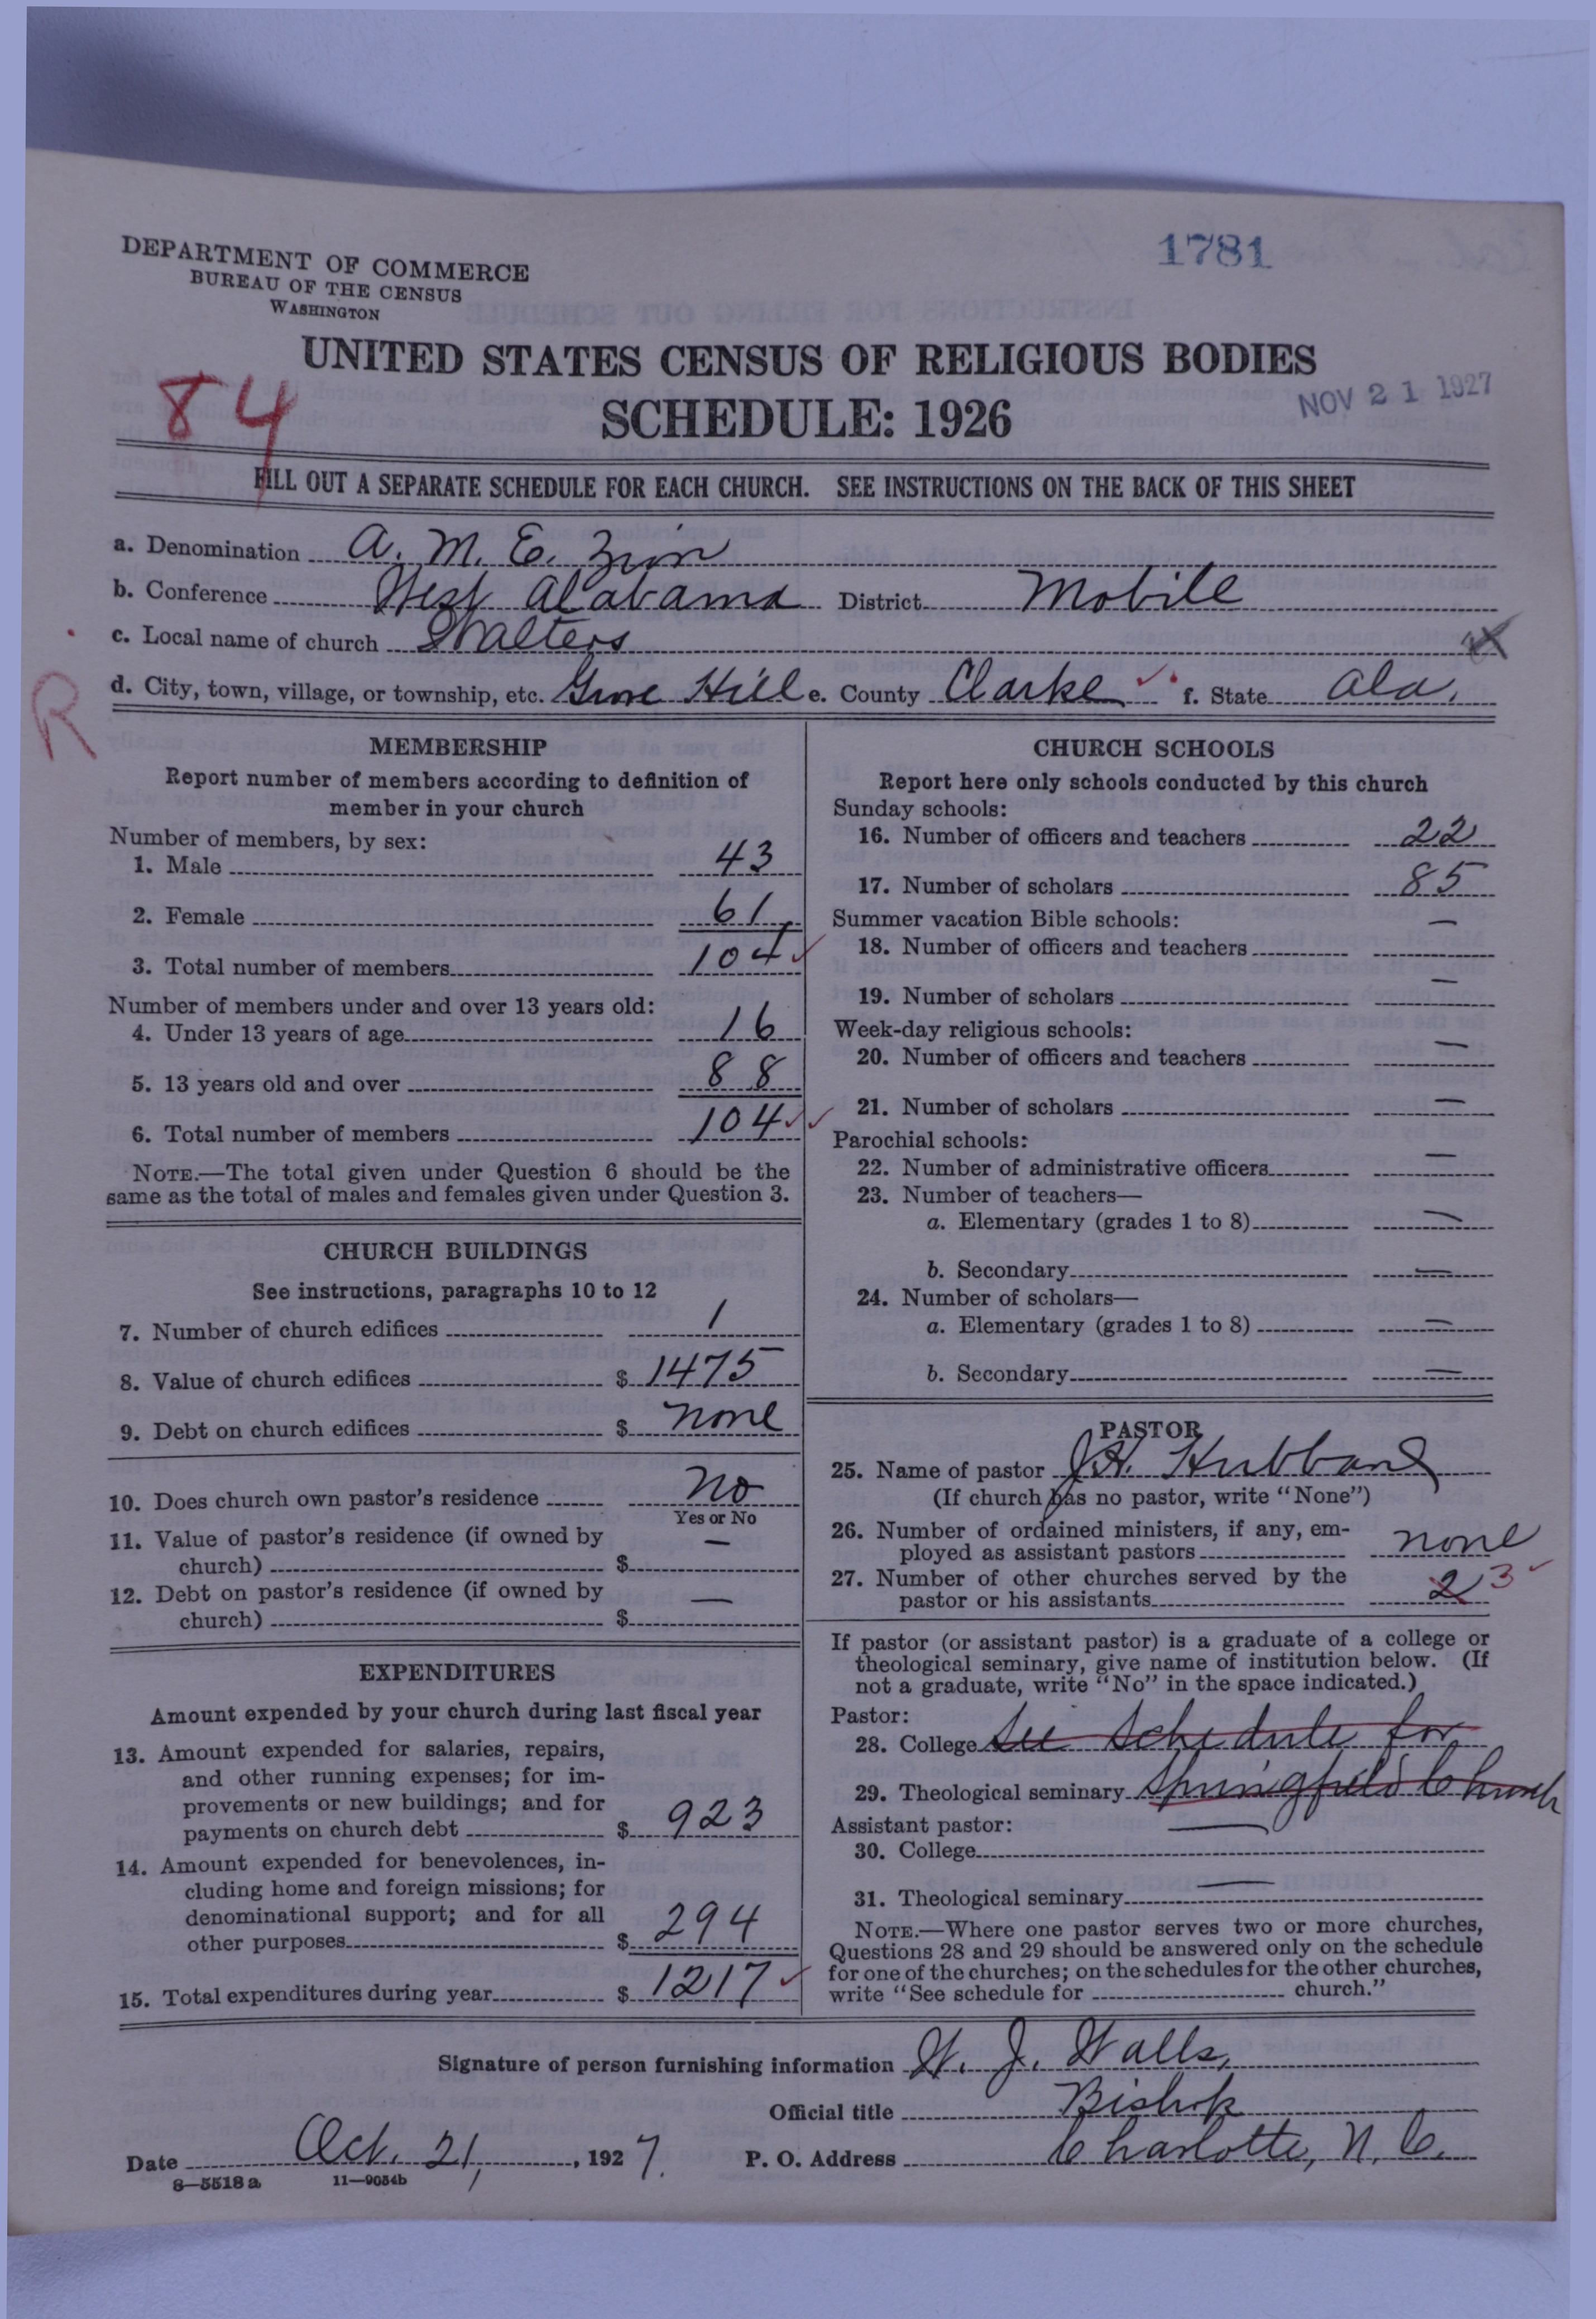 1781
DEPARTMENT OF COMMERCE
BUREAU OF THE CENSUS
WASHINGTON
UNITED STATES CENSUS OF RELIGIOUS BODIES
84
SCHEDULE: 1926
NOV 21 1927
FILL OUT A SEPARATE SCHEDULE FOR EACH CHURCH. SEE INSTRUCTIONS ON THE BACK OF THIS SHEET
a. Denomination A. M. E. Zion
b. Conference West Alabama District Mobile
c. Local name of church Walters
R
d. City, town, village, or township, etc. Grove Hill e. County Clarke f. State Ala.
MEMBERSHIP
Report number of members according to definition of
member in your church
Number of members, by sex:
1. Male 43
2. Female 61
3. Total number of members 104
Number of members under and over 13 years old:
4. Under 13 years of age 16
5. 13 years old and over 88
6. Total number of members 104
NOTE.—The total given under Question 6 should be the
same as the total of males and females given under Question 3.
CHURCH BUILDINGS
See instructions, paragraphs 10 to 12
7. Number of church edifices 1
8. Value of church edifices $ 1475
9. Debt on church edifices $ none
10. Does church own pastor's residence No
Yes or No
11. Value of pastor's residence (if owned by
church) $ —
12. Debt on pastor's residence (if owned by
church) $ —
EXPENDITURES
Amount expended by your church during last fiscal year
13. Amount expended for salaries, repairs,
and other running expenses; for im-
provements or new buildings; and for
payments on church debt $ 923
14. Amount expended for benevolences, in-
cluding home and foreign missions; for
denominational support; and for all
other purposes $ 294
15. Total expenditures during year $ 1217
CHURCH SCHOOLS
Report here only schools conducted by this church
Sunday schools:
16. Number of officers and teachers 22
17. Number of scholars 85
Summer vacation Bible schools:
18. Number of officers and teachers —
19. Number of scholars —
Week-day religious schools:
20. Number of officers and teachers —
21. Number of scholars —
Parochial schools:
22. Number of administrative officers —
23. Number of teachers—
a. Elementary (grades 1 to 8) —
b. Secondary —
24. Number of scholars—
a. Elementary (grades 1 to 8) —
b. Secondary —
PASTOR
25. Name of pastor J. H. Hubbard
(If church has no pastor, write "None")
26. Number of ordained ministers, if any, em-
ployed as assistant pastors none
27. Number of other churches served by the
pastor or his assistants 2 3
If pastor (or assistant pastor) is a graduate of a college or
theological seminary, give name of institution below. (If
not a graduate, write "No" in the space indicated.)
Pastor:
28. College See Schedule for
29. Theological seminary Springfield Church
Assistant pastor: —
30. College
31. Theological seminary —
NOTE.—Where one pastor serves two or more churches,
Questions 28 and 29 should be answered only on the schedule
for one of the churches; on the schedules for the other churches,
write "See schedule for church."
Signature of person furnishing information W. J. Walls,
Official title Bishop
Date Oct. 21, 1927. P. O. Address Charlotte, N. C.
8—5518 a 11—9054b